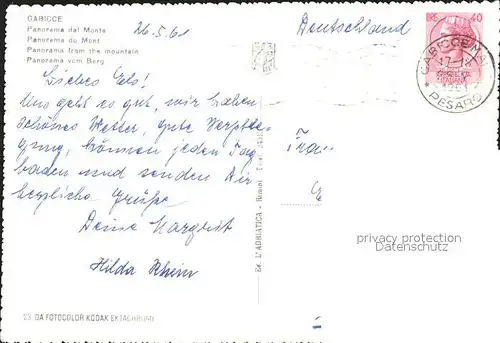 GABICCE
Panorama dal Monte
Panorama du Mont
Panorama from the mountain
Panorama vom Berg
26.5.61
Deutschland
IRE 40
GABICCE MA
17-18
1961
PESARO
Liebes Els!
Uns geht es gut, wir haben
schönes Wetter, gute Verpfle-
gung, können jeden Tag
baden und senden Dir
herzliche Grüße
Deine Margret
Hilda Rhein
Fra
Ed. L'ADRIATICA - Rimini
privacy protection
Datenschutz
DA FOTOCOLOR KODAK EKTACHROME